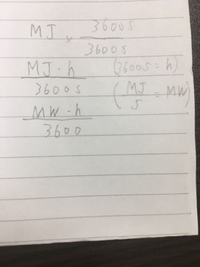 MJ × 3600s
3600s
MJ·h (3600s = h)
3600s (MJ/s = MW)
MW·h
3600